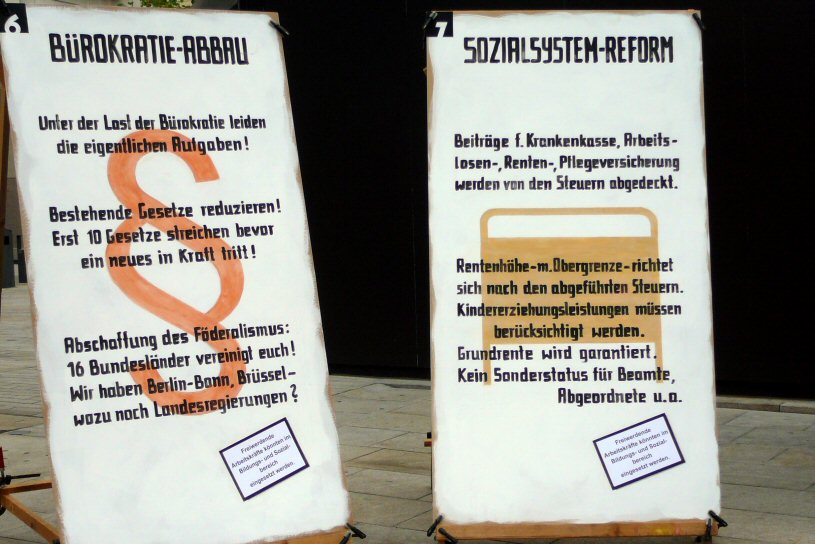 6
BÜROKRATIE-ABBAU
Unter der Last der Bürokratie leiden
die eigentlichen Aufgaben!
Bestehende Gesetze reduzieren!
Erst 10 Gesetze streichen bevor
ein neues in Kraft tritt!
Abschaffung des Föderalismus:
16 Bundesländer vereinigt euch!
Wir haben Berlin-Bonn, Brüssel-
wozu noch Landesregierungen?
Freiwerdende
Arbeitskräfte könnten im
Bildungs- und Sozial-
bereich
eingesetzt werden.
7
SOZIALSYSTEM-REFORM
Beiträge f. Krankenkasse, Arbeits-
losen-, Renten-, Pflegeversicherung
werden von den Steuern abgedeckt.
Rentenhöhe-m. Obergrenze-richtet
sich nach den abgeführten Steuern.
Kindererziehungsleistungen müssen
berücksichtigt werden.
Grundrente wird garantiert.
Kein Sonderstatus für Beamte,
Abgeordnete u.a.
Freiwerdende
Arbeitskräfte könnten im
Bildungs- und Sozial-
bereich
eingesetzt werden.